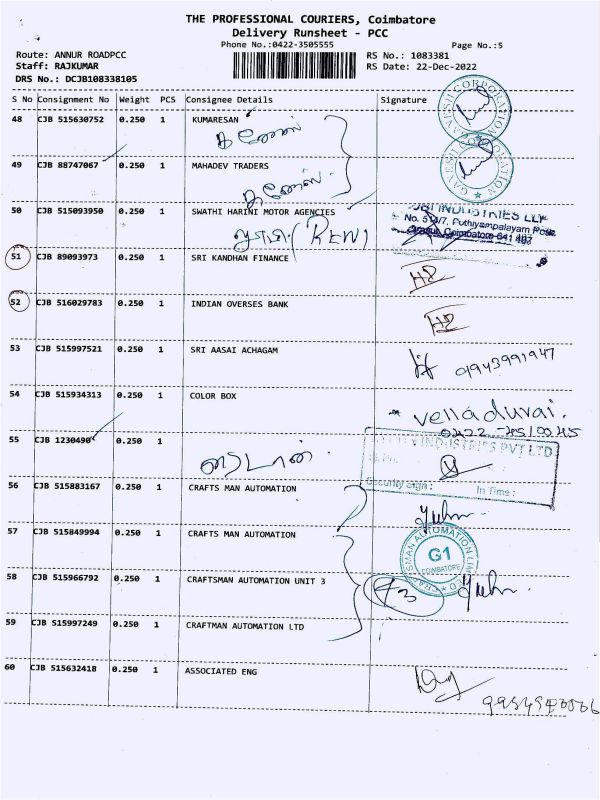 THE PROFESSIONAL COURIERS, Coimbatore
Delivery Runsheet - PCC
Phone No.:0422-3505555
Page No.:5
Route: ANNUR ROADPCC
RS No.: 1083381
Staff: RAJKUMAR
RS Date: 22-Dec-2022
DRS No.: DCJB108338105
S No Consignment No Weight PCS Consignee Details Signature
48 CJB 515630752 0.250 1 KUMARESAN
GAVESH CORPORATION
49 CJB 88747067 0.250 1 MAHADEV TRADERS
GAVESH CORPORATION
50 CJB 515093950 0.250 1 SWATHI HARINI MOTOR AGENCIES
INDUSTRIES LLP
Puthiyampalayam Post
Coimbatore-641 407
51 CJB 89093973 0.250 1 SRI KANDHAN FINANCE
52 CJB 516029783 0.250 1 INDIAN OVERSES BANK
53 CJB 515997521 0.250 1 SRI AASAI ACHAGAM
9943991947
54 CJB 515934313 0.250 1 COLOR BOX
velladurai.
55 CJB 1230490 0.250 1
INDUSTRIES PVT LTD
Security Sign : In Time :
56 CJB 515883167 0.250 1 CRAFTS MAN AUTOMATION
57 CJB 515849994 0.250 1 CRAFTS MAN AUTOMATION
CRAFTSMAN AUTOMATION LIMITED
G1
COIMBATORE
58 CJB 515966792 0.250 1 CRAFTSMAN AUTOMATION UNIT 3
59 CJB 515997249 0.250 1 CRAFTMAN AUTOMATION LTD
60 CJB 515632418 0.250 1 ASSOCIATED ENG